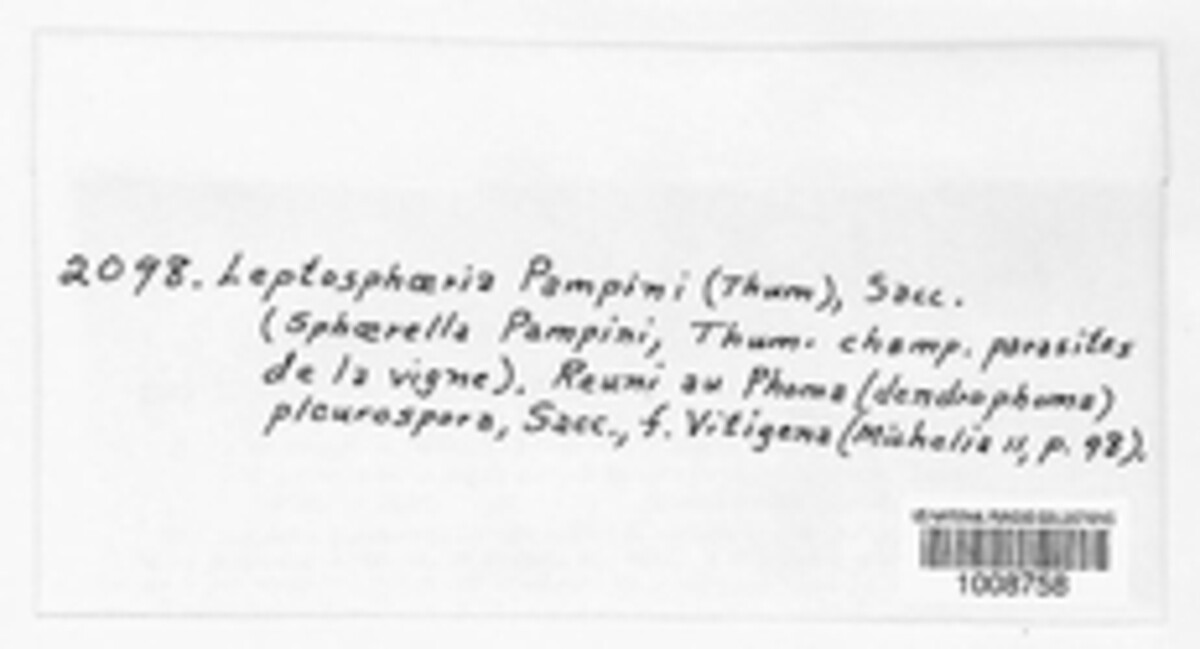 2098. Leptosphæria Pampini (Thum), Sacc.
(Sphærella Pampini, Thum. champ. parasites
de la vigne). Reuni au Phoma (dendrophoma)
pleurospora, Sacc., f. Vitigena (Michelia II, p. 98).
US NATIONAL FUNGUS COLLECTIONS
1008758